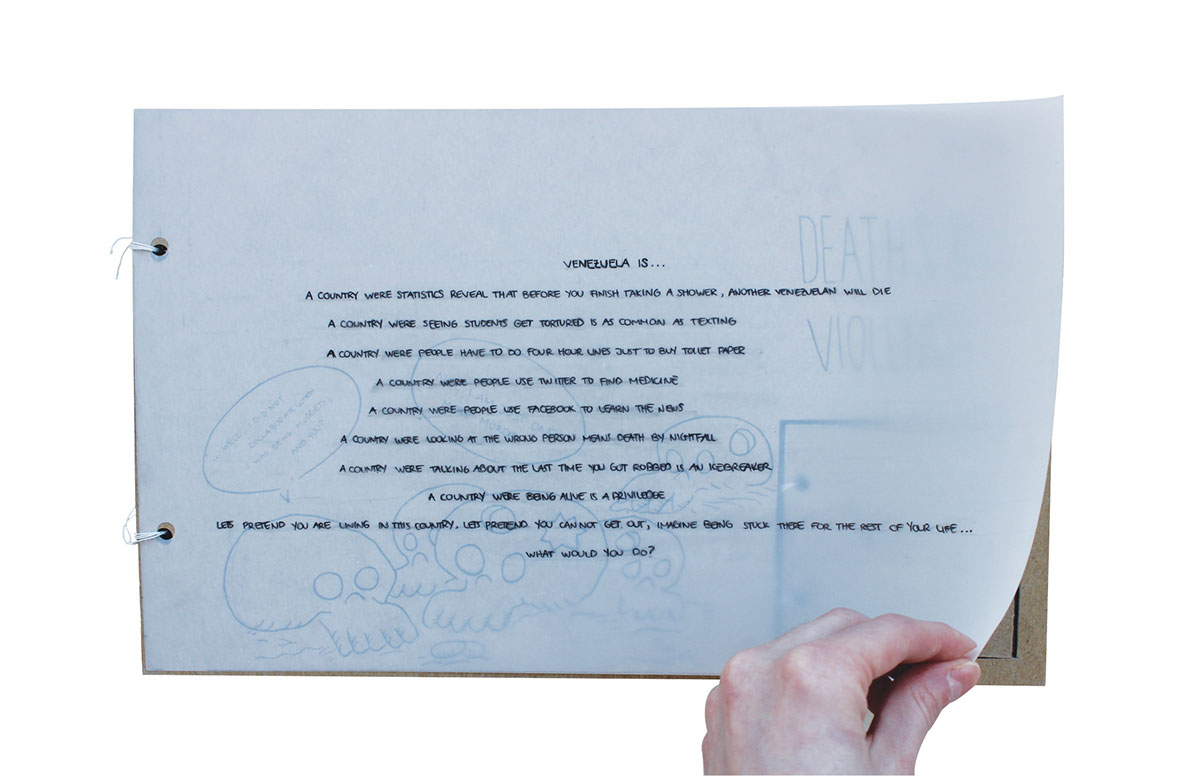 VENEZUELA IS...
A COUNTRY WERE STATISTICS REVEAL THAT BEFORE YOU FINISH TAKING A SHOWER, ANOTHER VENEZUELAN WILL DIE
A COUNTRY WERE SEEING STUDENTS GET TORTURED IS AS COMMON AS TEXTING
A COUNTRY WERE PEOPLE HAVE TO DO FOUR HOUR LINES JUST TO BUY TOILET PAPER
A COUNTRY WERE PEOPLE USE TWITTER TO FIND MEDICINE
A COUNTRY WERE PEOPLE USE FACEBOOK TO LEARN THE NEWS
A COUNTRY WERE LOOKING AT THE WRONG PERSON MEANS DEATH BY NIGHTFALL
A COUNTRY WERE TALKING ABOUT THE LAST TIME YOU GOT ROBBED IS AN ICEBREAKER
A COUNTRY WERE BEING ALIVE IS A PRIVILEDGE
LETS PRETEND YOU ARE LIVING IN THIS COUNTRY. LETS PRETEND YOU CAN NOT GET OUT, IMAGINE BEING STUCK THERE FOR THE REST OF YOUR LIFE...
WHAT WOULD YOU DO?
DEATH
WELL, I DID NOT
COLLABORATE WHEN
WAS BEING MUGGED,
AND YOU?